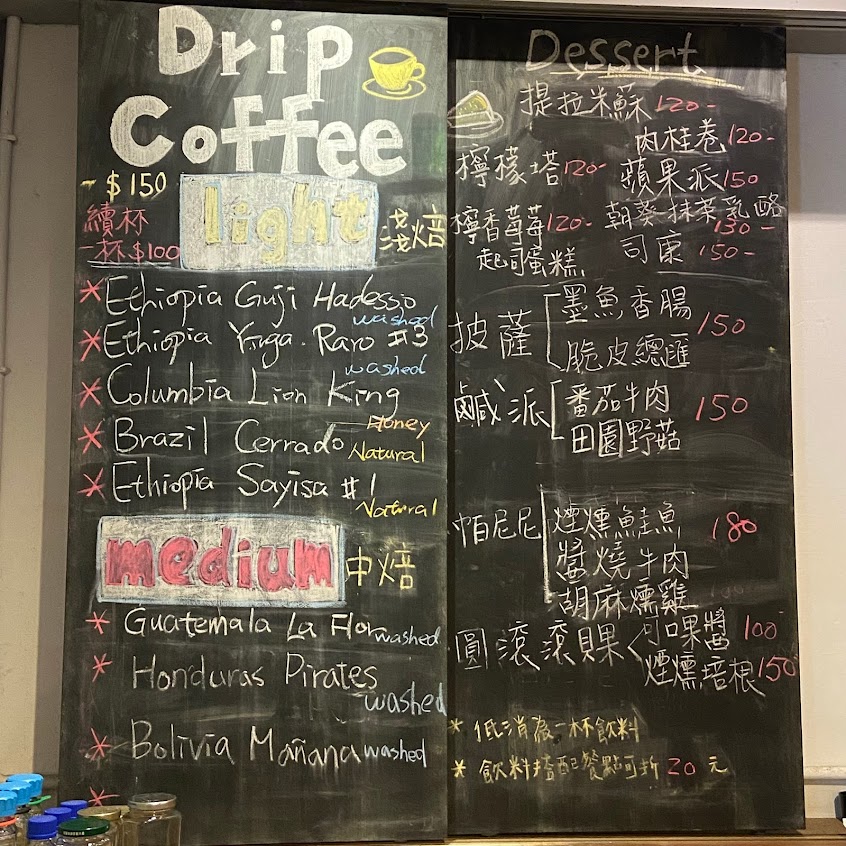 Drip
Coffee
- $150
續杯
一杯$100
light 淺焙
* Ethiopia Guji Hadessio
washed
* Ethiopia Yirga. Raro #3
washed
* Columbia Lion King
Honey
* Brazil Cerrado
Natural
* Ethiopia Sayisa #1
Natural
medium 中焙
* Guatemala La Flor washed
* Honduras Pirates
washed
* Bolivia Mañana washed
*
Dessert
提拉米蘇 120-
肉桂卷 120-
檸檬塔 120-
蘋果派 150
檸香莓莓 120-
起司蛋糕
朝葵抹茶乳酪
130-
司康 150-
披薩
墨魚香腸
脆皮總匯
150
鹹派
番茄牛肉
田園野菇
150
帕尼尼
煙燻鮭魚
醬燒牛肉
胡麻燻雞
180
圓滾滾貝果
可口果醬 100
煙燻培根 150
* 低消為一杯飲料
* 飲料搭配餐點可折 20 元